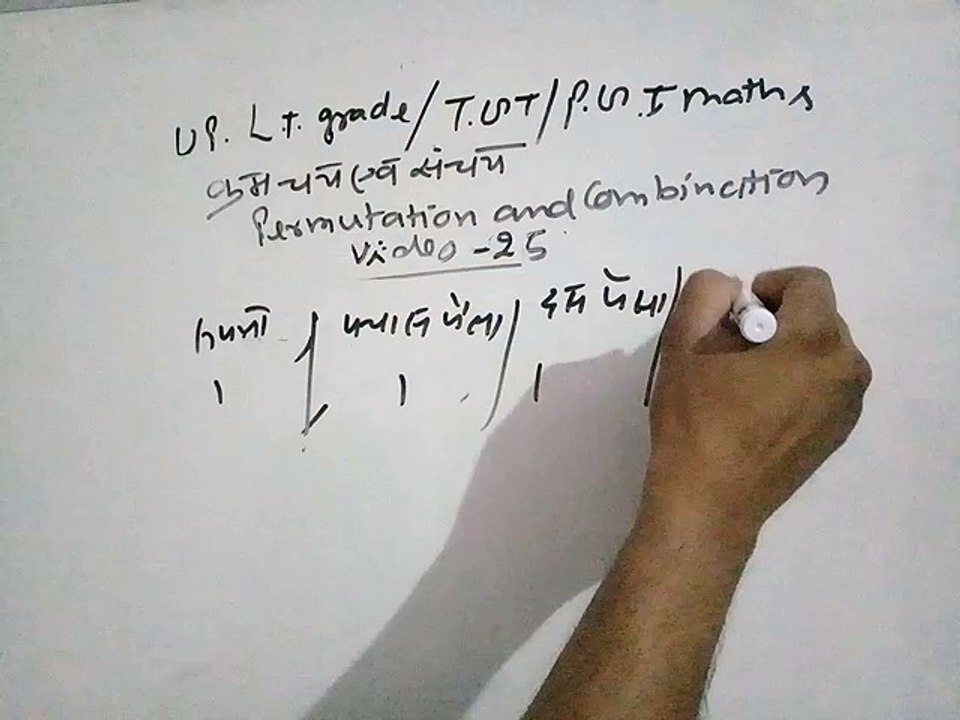 UP. L.T. grade/T.G.T/P.G.T maths
क्रमचयएवं संचय
Permutation and Combination
Video -25
रुपया / पचास पैसा / दस पैसा /
1 / 1 / 1